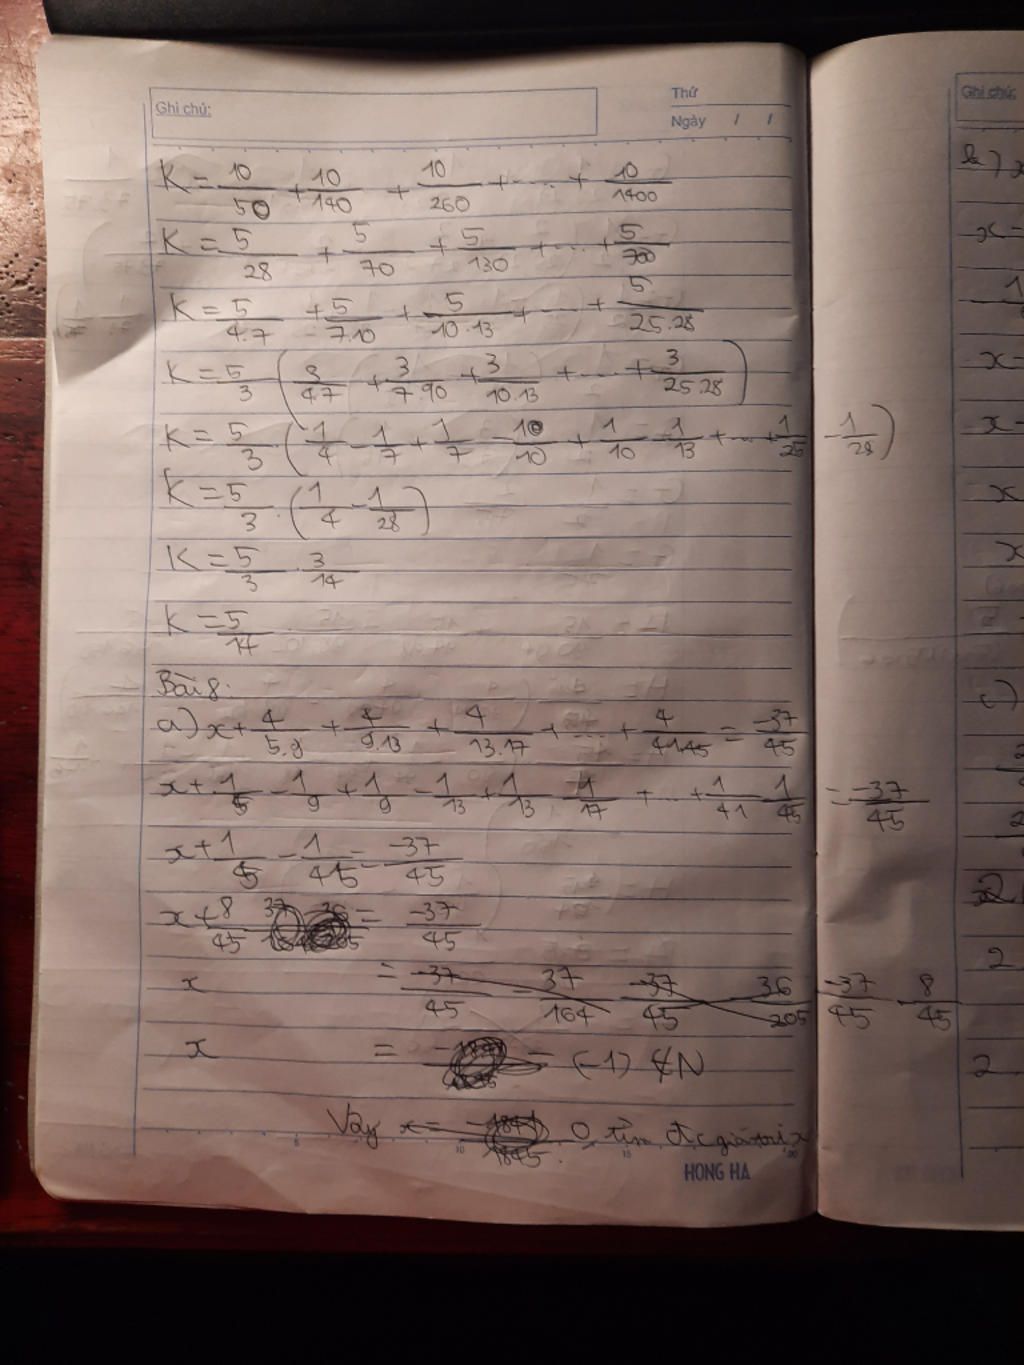 Ghi chú:
Thứ
Ngày / /
K = 10/50 + 10/140 + 10/260 + ... + 10/1400
K = 5/28 + 5/70 + 5/130 + ... + 5/700
K = 5/4.7 + 5/7.10 + 5/10.13 + ... + 5/25.28
K = 5/3 (3/4.7 + 3/7.90 + 3/10.13 + ... + 3/25.28)
K = 5/3 . (1/4 - 1/7 + 1/7 - 10/10 + 1/10 - 1/13 + ... + 1/25 - 1/28)
K = 5/3 . (1/4 - 1/28)
K = 5/3 . 3/14
K = 5/14
Bài 8:
a) x + 4/5.9 + 4/9.13 + 4/13.17 + ... + 4/41.45 = -37/45
x + 1/5 - 1/9 + 1/9 - 1/13 + 1/13 - 1/17 + ... + 1/41 - 1/45 = -37/45
x + 1/5 - 1/45 = -37/45
x + 8/45 = -37/45
x = -37/45 - 37/164 -37/45 - 36/205 -37/45 - 8/45
x = = (-1) ∉ N
Vậy x = 0 tìm đc giá trị x
HONG HA
Ghi chú:
b) x
x =
x =
x -
x
x
c)
2
2
2
2